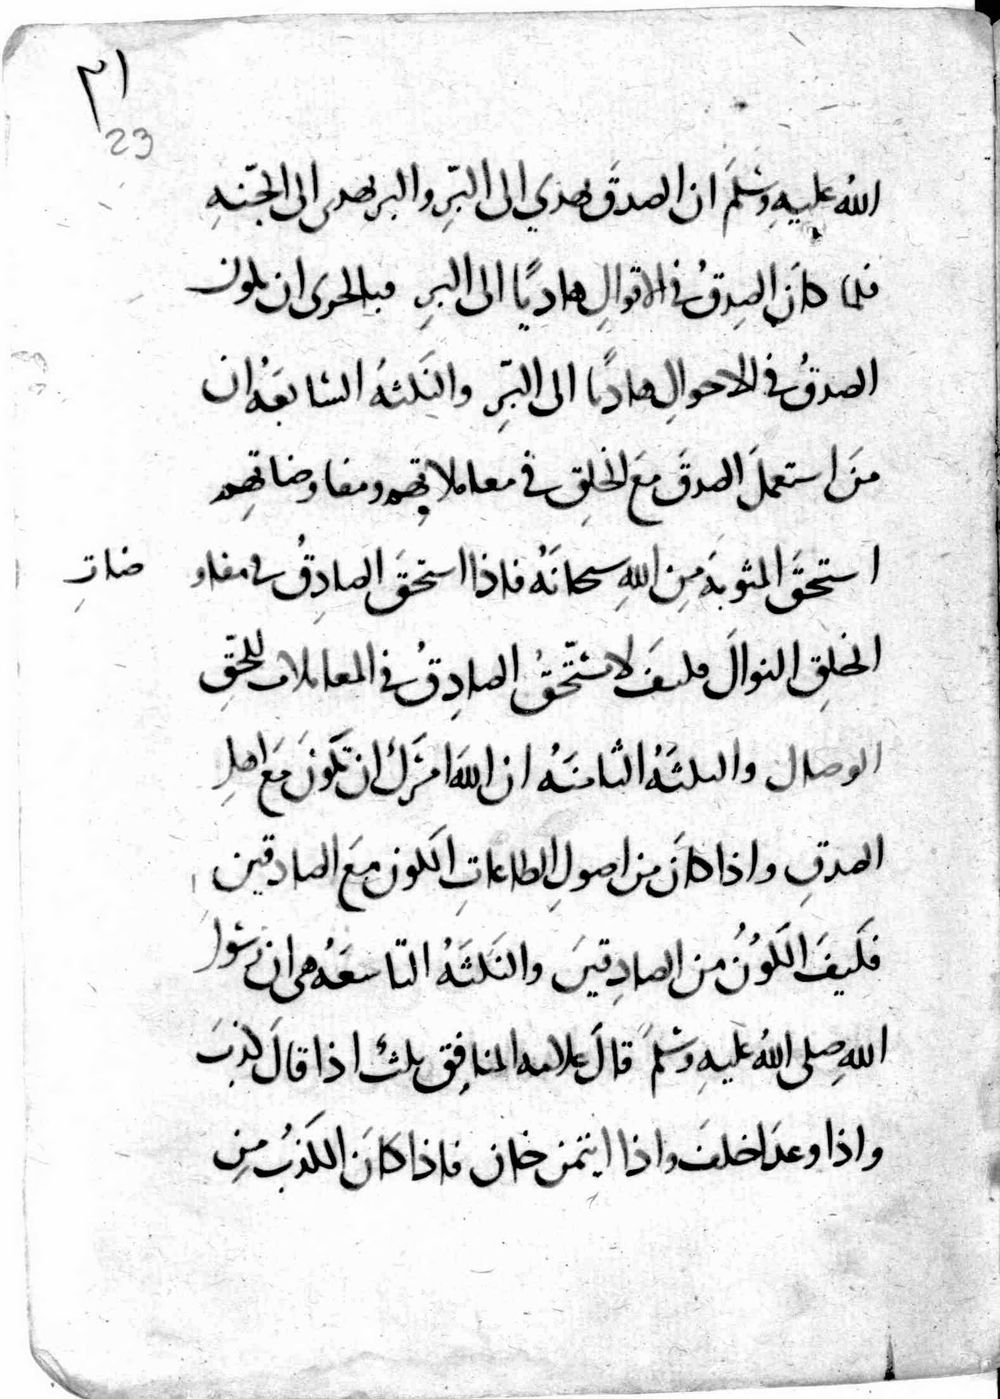 ٢١
23
الله عليه وسلم ان الصدق يهدي الى البرّ والبر يهدى الى الجنّه
فلما كان الصدقُ في الاقوالِ هاديًا الى البرِ فبالحرى ان يكون
الصدقُ في الاحوالِ هاديًا الى البرِّ والنكتهُ السابعَهُ ان
منَ استعملَ الصدقَ مَعَ الخلقِ في معاملاتِهم ومفاوضاتِهم
استحقَّ المثوبةَ مِنَ اللهِ سبحانَهُ فاذا استحقَ الصادِقُ في مفاوضاتِ
الخلقِ النوالَ فكيفَ لا يستحّقُ الصادِقُ في المعاملات للحّقِ
الوصال والنكتَهُ الثامنَهُ ان اللهَ امَرَكَ ان تكونَ مَعَ اهلِ
الصدقِ واذا كانَ من اصولِ الطاعاتِ الكون مَعَ الصادقين
فكيفَ الكوُنُ من الصادِقينَ والنكتَهُ التاسعَهُ هى ان رسُول
اللهِ صلى اللهُ عليهِ وسَلم قالَ علامه المنافِق ثلث اذا قالَ كذبَ
واذا وعدَ اخلفَ واذا ايتمن خان فاذا كانَ الكذبُ مِن